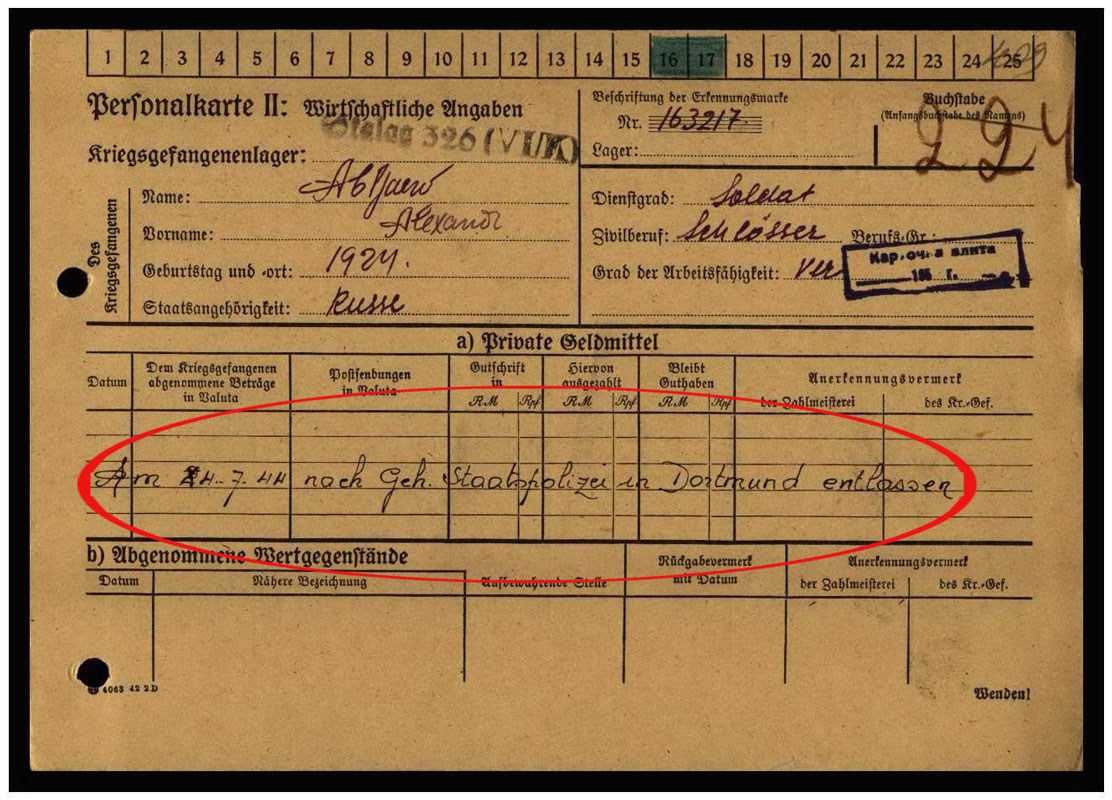 1 2 3 4 5 6 7 8 9 10 11 12 13 14 15 16 17 18 19 20 21 22 23 24 25
Personalkarte II: Wirtschaftliche Angaben
Stalag 326 (VI/K)
Kriegsgefangenenlager:
Beschriftung der Erkennungsmarke
Nr. 163217
Lager:
Buchstabe
(Anfangsbuchstabe des Namens)
224
Des Kriegsgefangenen
Name:
Vorname: Alexandr
Geburtstag und -ort: 1924.
Staatsangehörigkeit: Russe
Dienstgrad: Soldat
Zivilberuf: Schlösser Berufs-Gr.:
Grad der Arbeitsfähigkeit:
a) Private Geldmittel
Datum
Dem Kriegsgefangenen
abgenommene Beträge
in Valuta
Postsendungen
in Valuta
Gutschrift
in
RM Rpf
Hiervon
ausgezahlt
RM Rpf
Bleibt
Guthaben
RM Rpf
Anerkennungsvermerk
der Zahlmeisterei des Kr.-Gef.
Am 24.7.44 nach Geh. Staatspolizei in Dortmund entlassen
b) Abgenommene Wertgegenstände
Datum
Nähere Bezeichnung
Aufbewahrende Stelle
Rückgabevermerk
mit Datum
Anerkennungsvermerk
der Zahlmeisterei des Kr.-Gef.
4063 42 2D
Wenden!